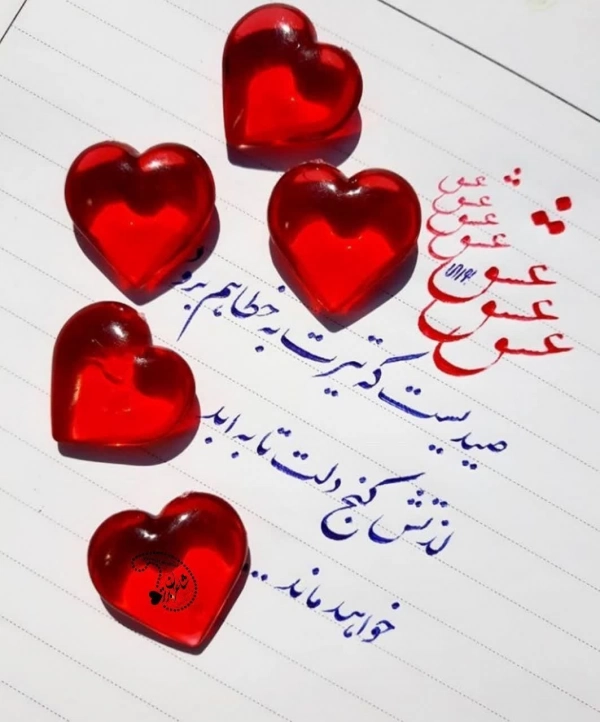 عشق
عشق
عشق
عشق
عشق
عشق
عشق
صیدیست که تیرت به خطا هم برو
لذتش کنج دلت تا به ابد
خواهد ماند...